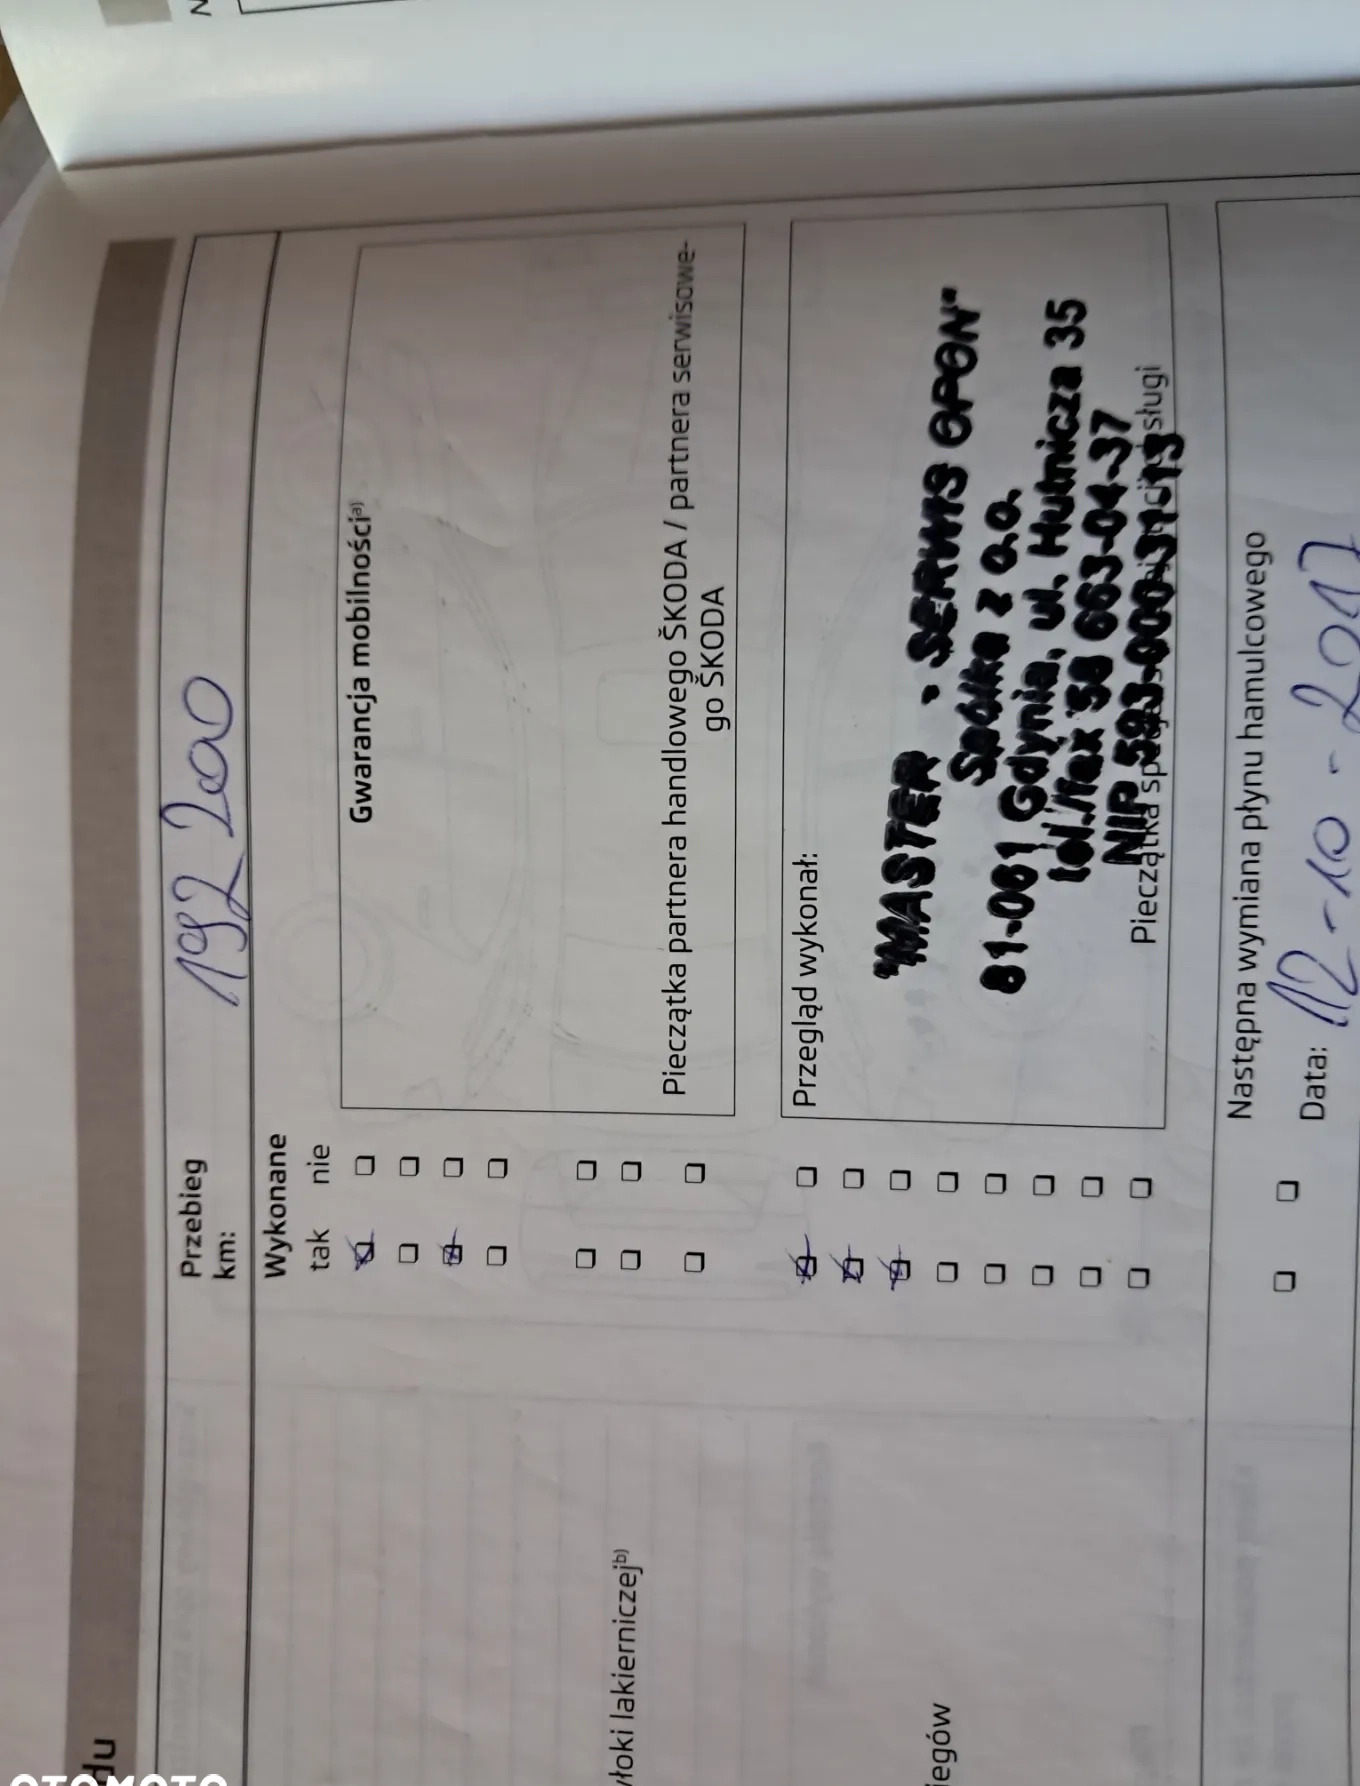 du
Przebieg
km:
192 200
Wykonane
tak nie
Gwarancja mobilnościa)
Pieczątka partnera handlowego ŠKODA / partnera serwisowe-
go ŠKODA
włoki lakierniczejb)
Przegląd wykonał:
"MASTER - SERWIS OPON"
Spółka z o.o.
81-061 Gdynia, ul. Hutnicza 35
tel./fax 58 663-04-37
NIP 593-000-31-13
Pieczątka
sługi
iegów
Następna wymiana płynu hamulcowego
Data:
OTOMOTO
N